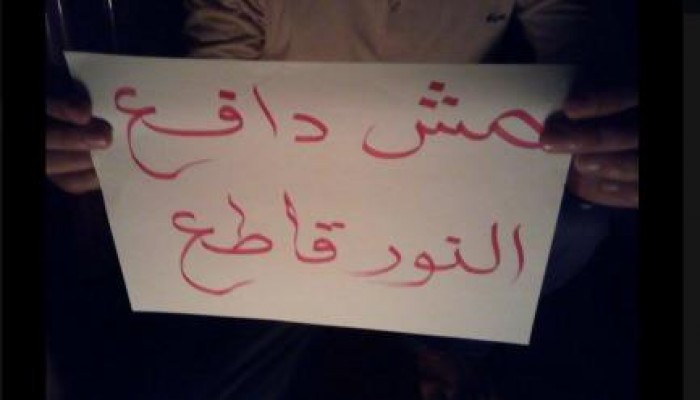 مش دافع
النور قاطع